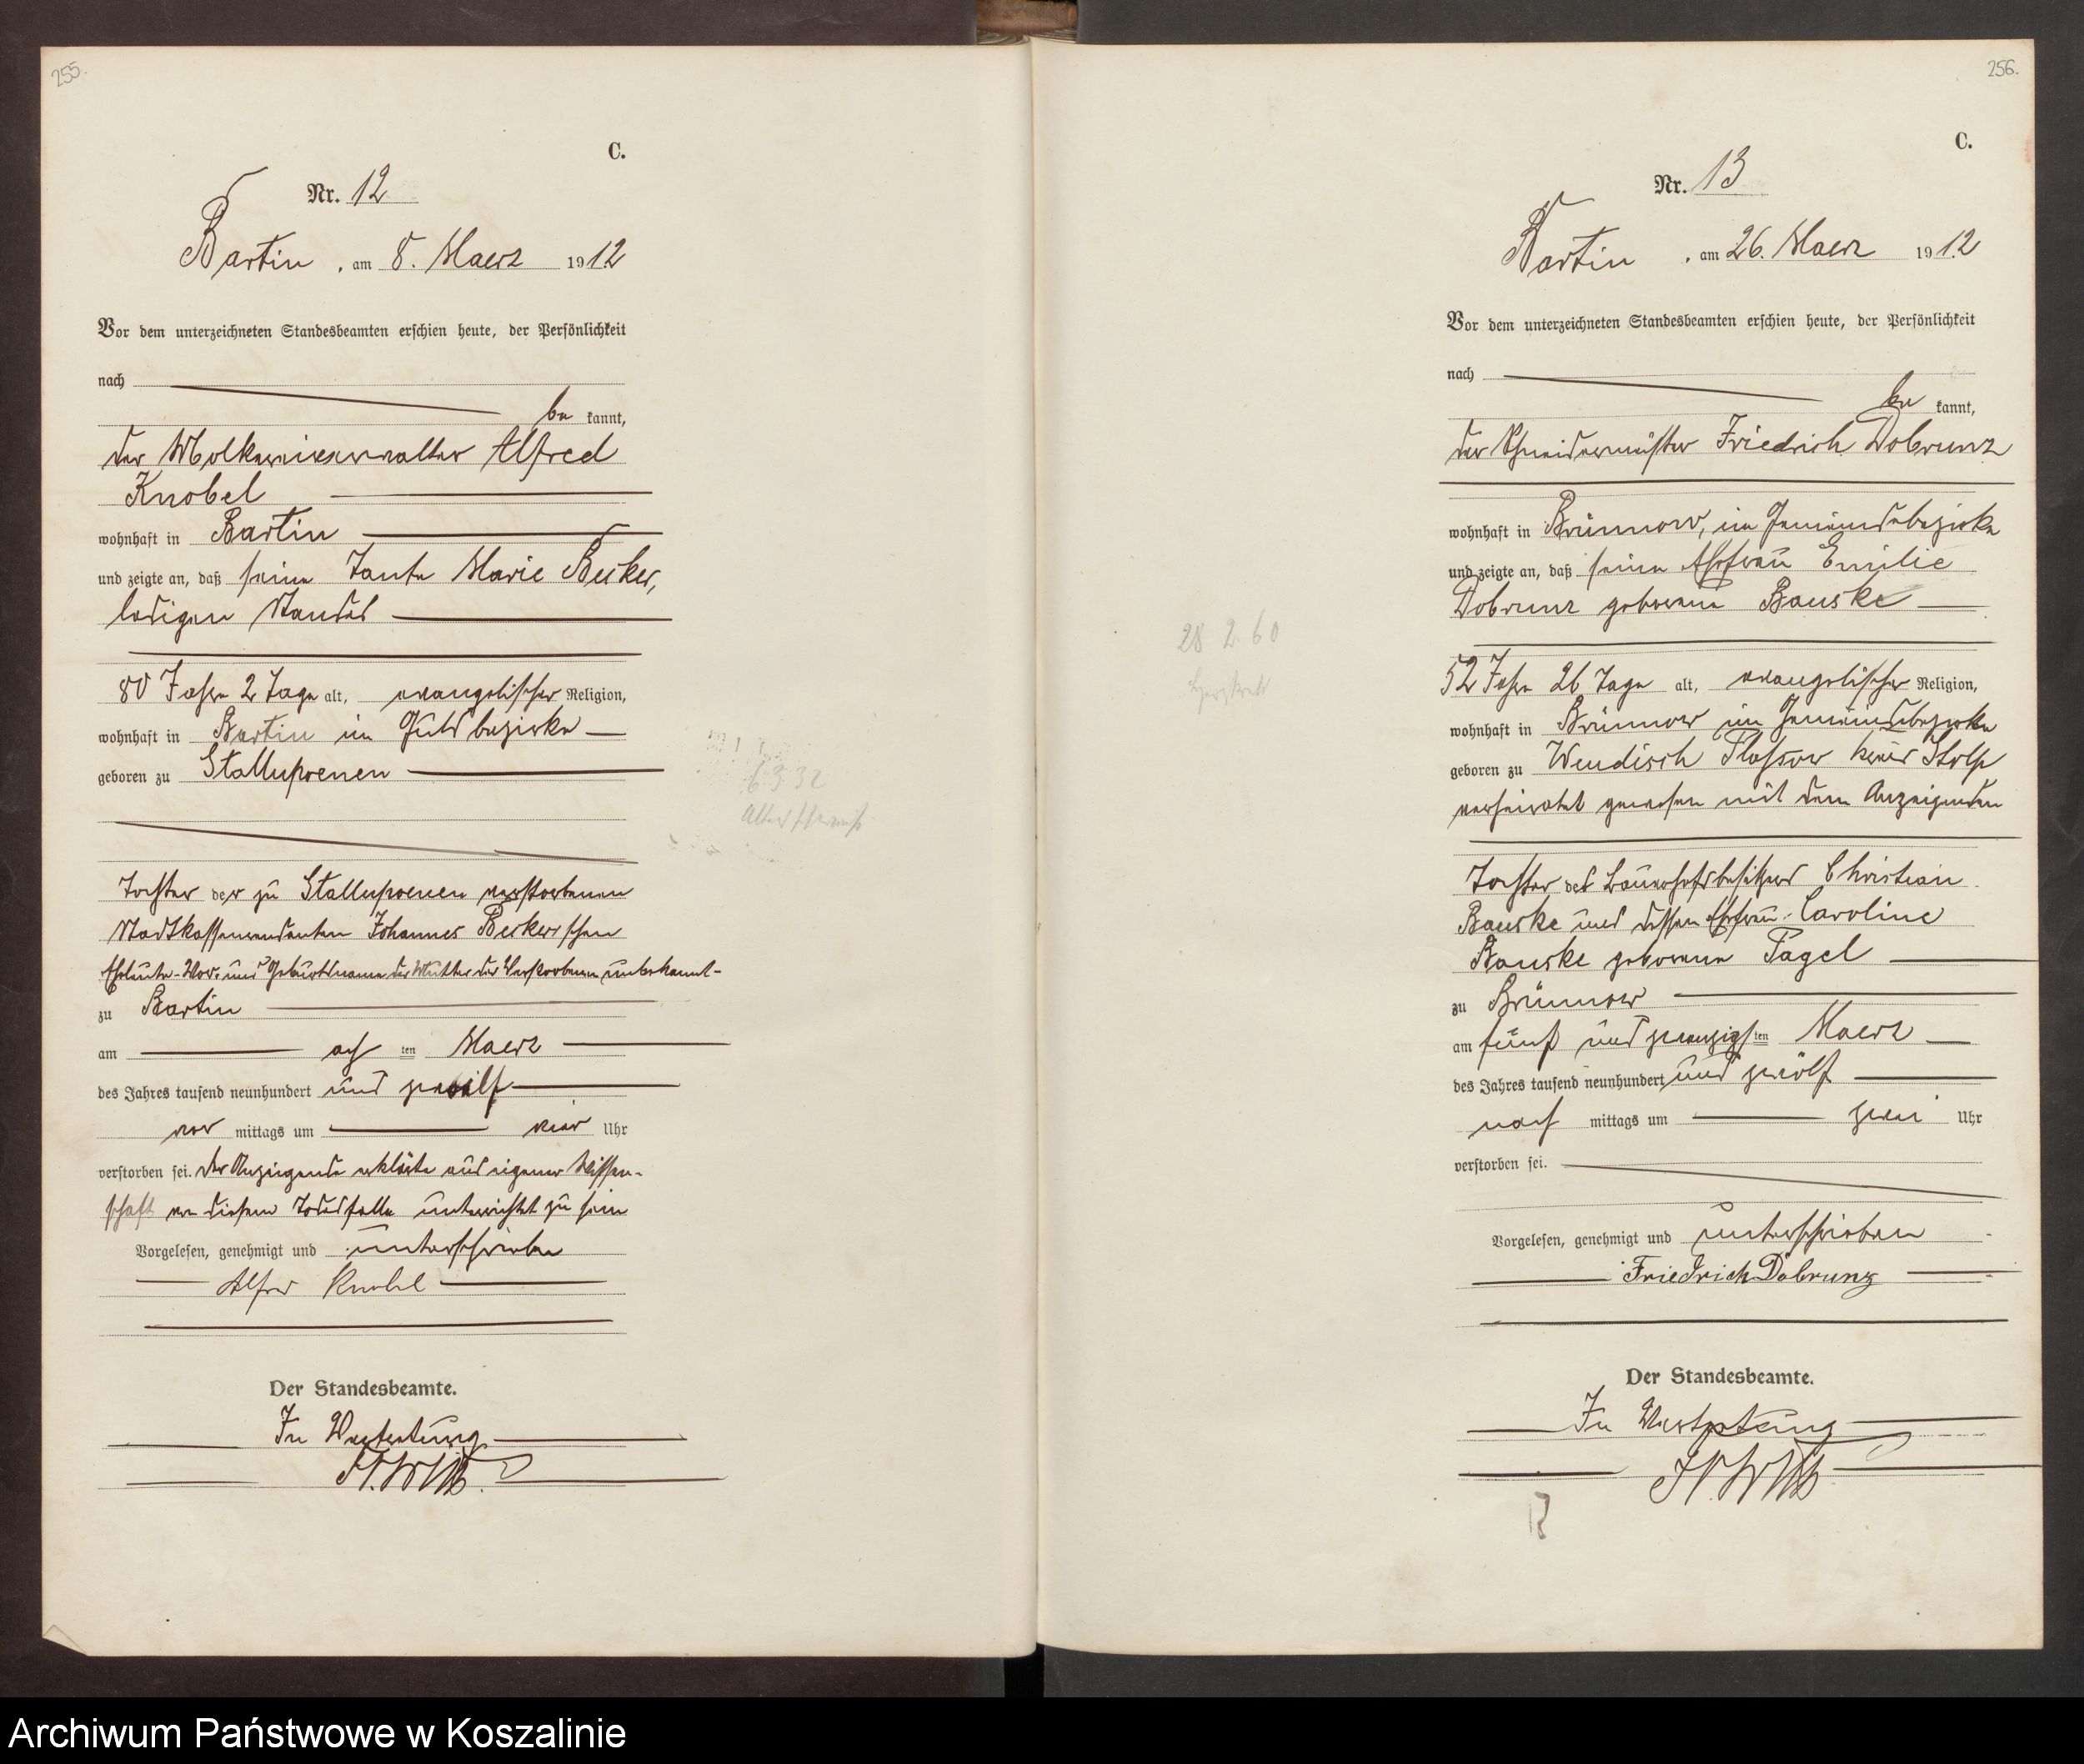 255.
C.
Nr. 12
Bartin, am 8. Maerz 1912
Vor dem unterzeichneten Standesbeamten erschien heute, der Persönlichkeit
nach
be kannt,
der Molkereiverwalter Alfred
Knobel
wohnhaft in Bartin
und zeigte an, daß seine Tante Marie Becker,
ledigen Standes
80 Jahre 2 Tage alt, evangelischer Religion,
wohnhaft in Bartin im Gutsbezirke
geboren zu Stallupoenen
Tochter der zu Stallupoenen verstorbenen
Stadtkassenrendanten Johannes Becker'schen
Eheleute - Vor- und Geburtsname der Mutter der Verstorbenen unbekannt -
zu Bartin
am ach ten Maerz
des Jahres tausend neunhundert und zwölf
vor mittags um vier Uhr
verstorben sei. Der Anzeigende erklärte aus eigener Wissen-
schaft von diesem Todesfalle unterrichtet zu sein
Vorgelesen, genehmigt und unterschrieben
Alfred Knobel
Der Standesbeamte.
In Vertretung
6 3 32
Altersschwäche
256.
C.
Nr. 13
Bartin, am 26. Maerz 1912
Vor dem unterzeichneten Standesbeamten erschien heute, der Persönlichkeit
nach
be kannt,
der Schneidermeister Friedrich Dobrunz
wohnhaft in Brünnow, im Gemeindebezirke
und zeigte an, daß seine Ehefrau Emilie
Dobrunz geborene Bauske
52 Jahre 26 Tage alt, evangelischer Religion,
wohnhaft in Brünnow im Gemeindebezirke
geboren zu Wendisch Plassow Kreis Stolp
verheiratet gewesen mit dem Anzeigenden
Tochter des Bauerhofsbesitzers Christian
Bauske und dessen Ehefrau Caroline
Bauske geborene Pagel
zu Brünnow
am fünf und zwanzigsten Maerz
des Jahres tausend neunhundert und zwölf
nach mittags um zwei Uhr
verstorben sei.
Vorgelesen, genehmigt und unterschrieben
Friedrich Dobrunz
Der Standesbeamte.
In Vertretung
28 2 60
Archiwum Państwowe w Koszalinie